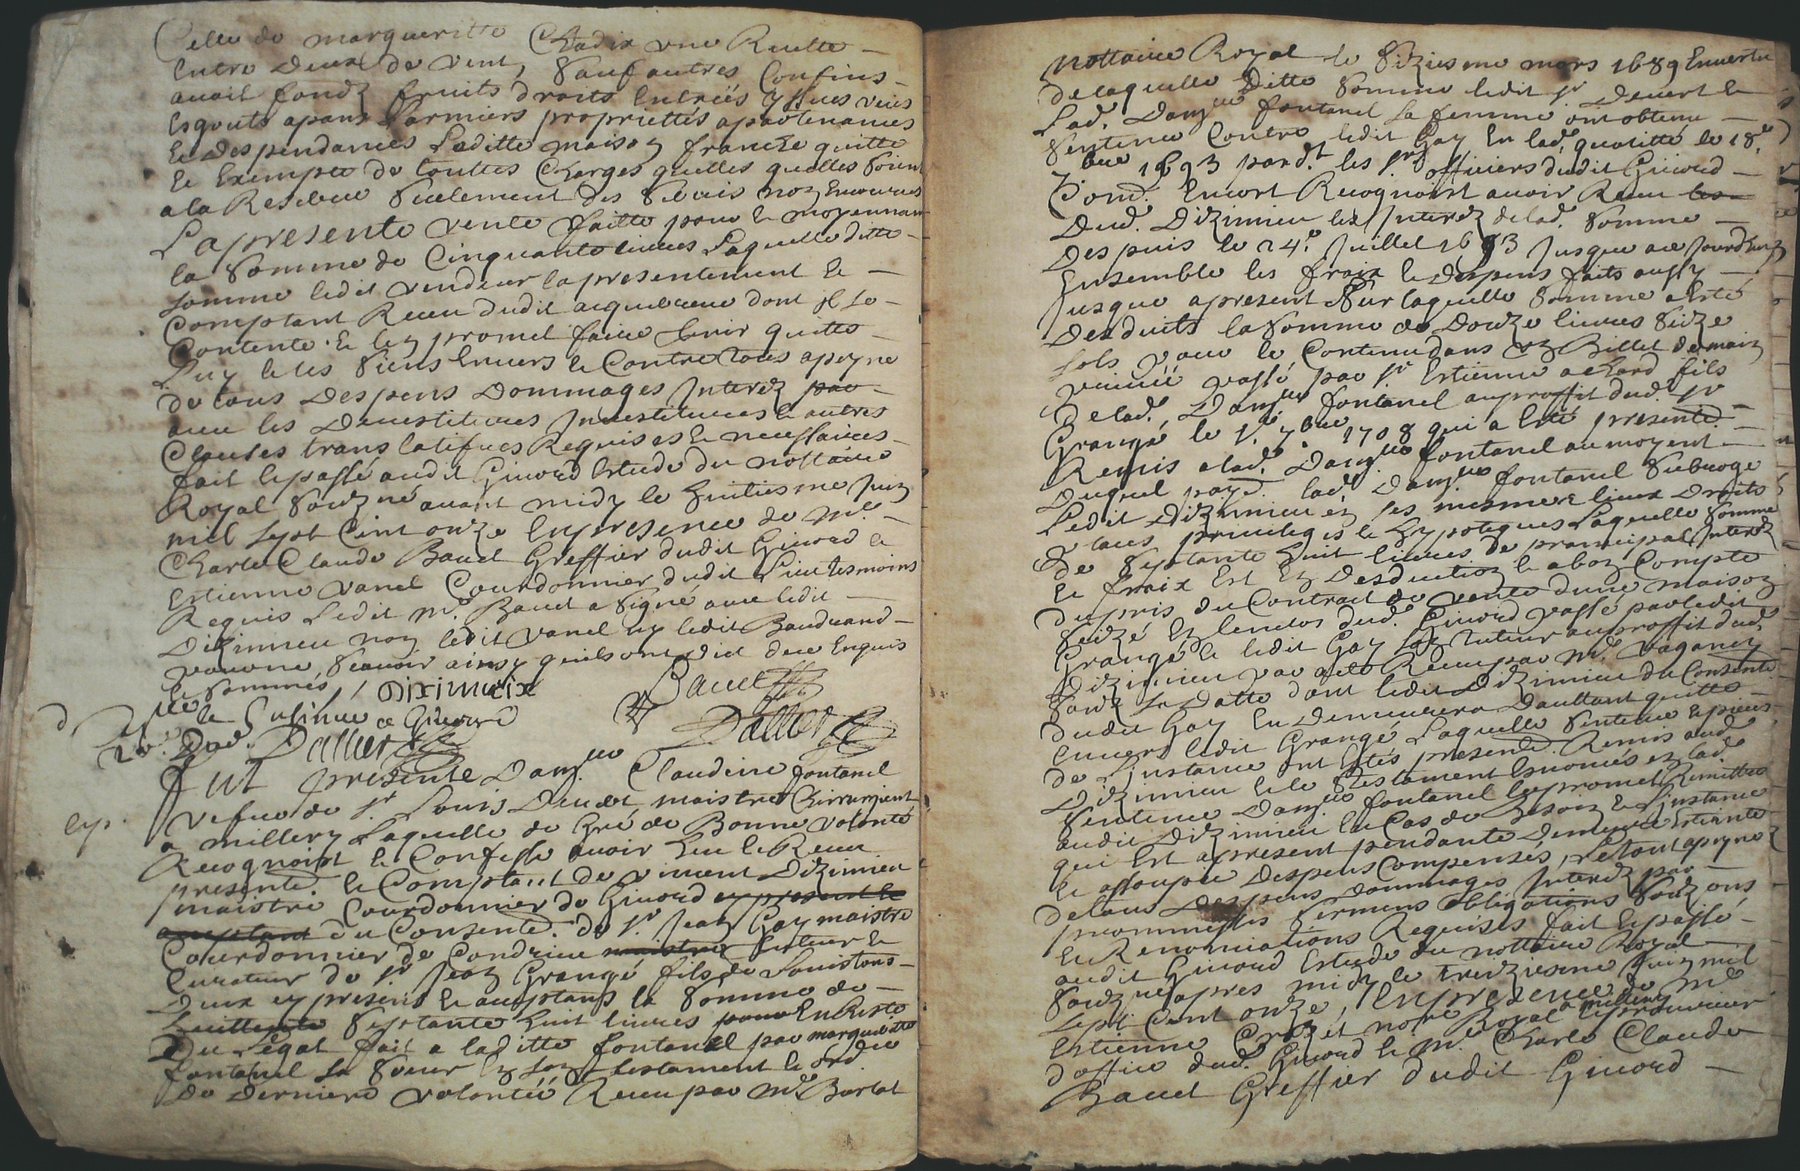 Celle de margueritte Chadix une Ruelle
Entre deux de vent, Sauf autres Confins
avait fondz fruits droits Entrées yssues veües
Esgouts apans Larmiers proprietés apartenances
Et despendances Laditte maison franche quitte
Et Exempte de touttes Charges quelles quelles soint
a la Reserve seulement des servis non Encourues
La presente vente faitte pour & moyennant
la somme de Cinquante livres Laquelle ditte
somme ledit vendeur la presentement &
Comptant Receu dudit acquereur dont Il se
Contente & len promet faire tenir quitte
Luy & les siens Envers & Contre tous apeyne
de tous despens dommages Interez par
avec les devestitures Investitures & autres
Clauses translatifves Requises & necessaires
fait & passé audit Givord Estude du nottaire
Royal Soubzné avant midy le huitiesme Juin
mil sept Cent onze En presence de me
Charle Claude Baud Greffier dudit Givord &
Estienne vanel Courdonnier dudit Lieu tesmoins
Requis Ledit me Baud a signé avec ledit
Dizimieu non ledit vanel ny ledit Bandrand
pour ne sçavoir ainsy quils ont dict de ce Enquis
& sommés / Diximieix
Baud
Dallier
Fut presente Damlle Claudine fontanel
vefve de sr Louis Deudet maistre Chirurgient
a millery Laquelle de Gré de Bonne volonté
Recognoist & Confesse avoir Heu & Receu
presentt & Comptant de vincent Dizimieu
maistre Courdonnier de Givord en present &
comptant du Consentt de sr Jean Gay maistre
Courdonnier de Condrieu tuteur &
Curateur de sr Jean Grangé fils de Louis tous
deux cy presens & acceptans la somme de
Septante huit livres pour En Reste
du Legat fait a laditte fontanel par margueritte
fontanel sa sœur En son testament & ord. de
de derniere volontée Receu par me Bartat
nottaire Royal le sizieme mars 1689 En vertu
de laquelle ditte somme ledit sr Deudet &
Lad. Damlle fontanel sa femme ont obtenu
sentence Contre ledit Gay En lad. quallité le 18e
7bre 1693 pard.t les srs officiers dudit Givord
Comd. Encort Recognoist avoir Receu les
Dud. Dizimieu les Interez de lad. somme
Despuis le 24e Juillet 1693 Jusque au Jourdhuy
Ensemble les fraix & despens faits aussy
Jusque apresent sur laquelle somme a Esté
Desduitte la somme de Douze livres seize
sols pour le Contenu dans un Billet de main
privée passé par sr Estienne achard fils
De lad. Damlle fontanel au proffit dud. sr
Grangé le 1er 7bre 1708 qui a Esté presentt
Remis a lad. Damlle fontanel au moyent
Duquel payt lad. Damlle fontanel subroge
Ledit Dizimieu en ses mesmes lieux Droits
& tous privileges & hypoteques Laquelle somme
De septante huit livres de principal Interez
& fraix Est En Desduction & a bon Compte
Du pris du Contrat de vente dune maison
seize En lenclos dud. Givord passé par ledit
Grangé & ledit Gay son tuteur au proffit dud.
Dizimieu par acte Receu par me vaganey
soubz sa datte dont ledit Dizimieu du Consentt
dudit Gay En demeurera dauttant quitte
Envers ledit Grangé Laquelle sentence & pieces
De Linstance ont Estés presentt Remis aud.
Dizimieu & le testament Enoncés en lad.
sentence Damlle fontanel le promet Remettre
audit Dizimieu En Cas de Besoin & Linstance
qui Est apresent pendante demeure Esteinte
& assoupie Despens Compensés, Le tout apeyne
De tous despens dommages Interez par
promesses sermens obligations soubz ons
& Renonciations Requises fait & passé
audit Givord Estude du nottaire Royal
Soubzné apres midy le treiziesme Juin mil
sept Cent onze, En presence de me
Estienne Crozet notre Royal a millery & procureur
doffice dud. Givord & me Charle Claude
Baud Greffier dudit Givord